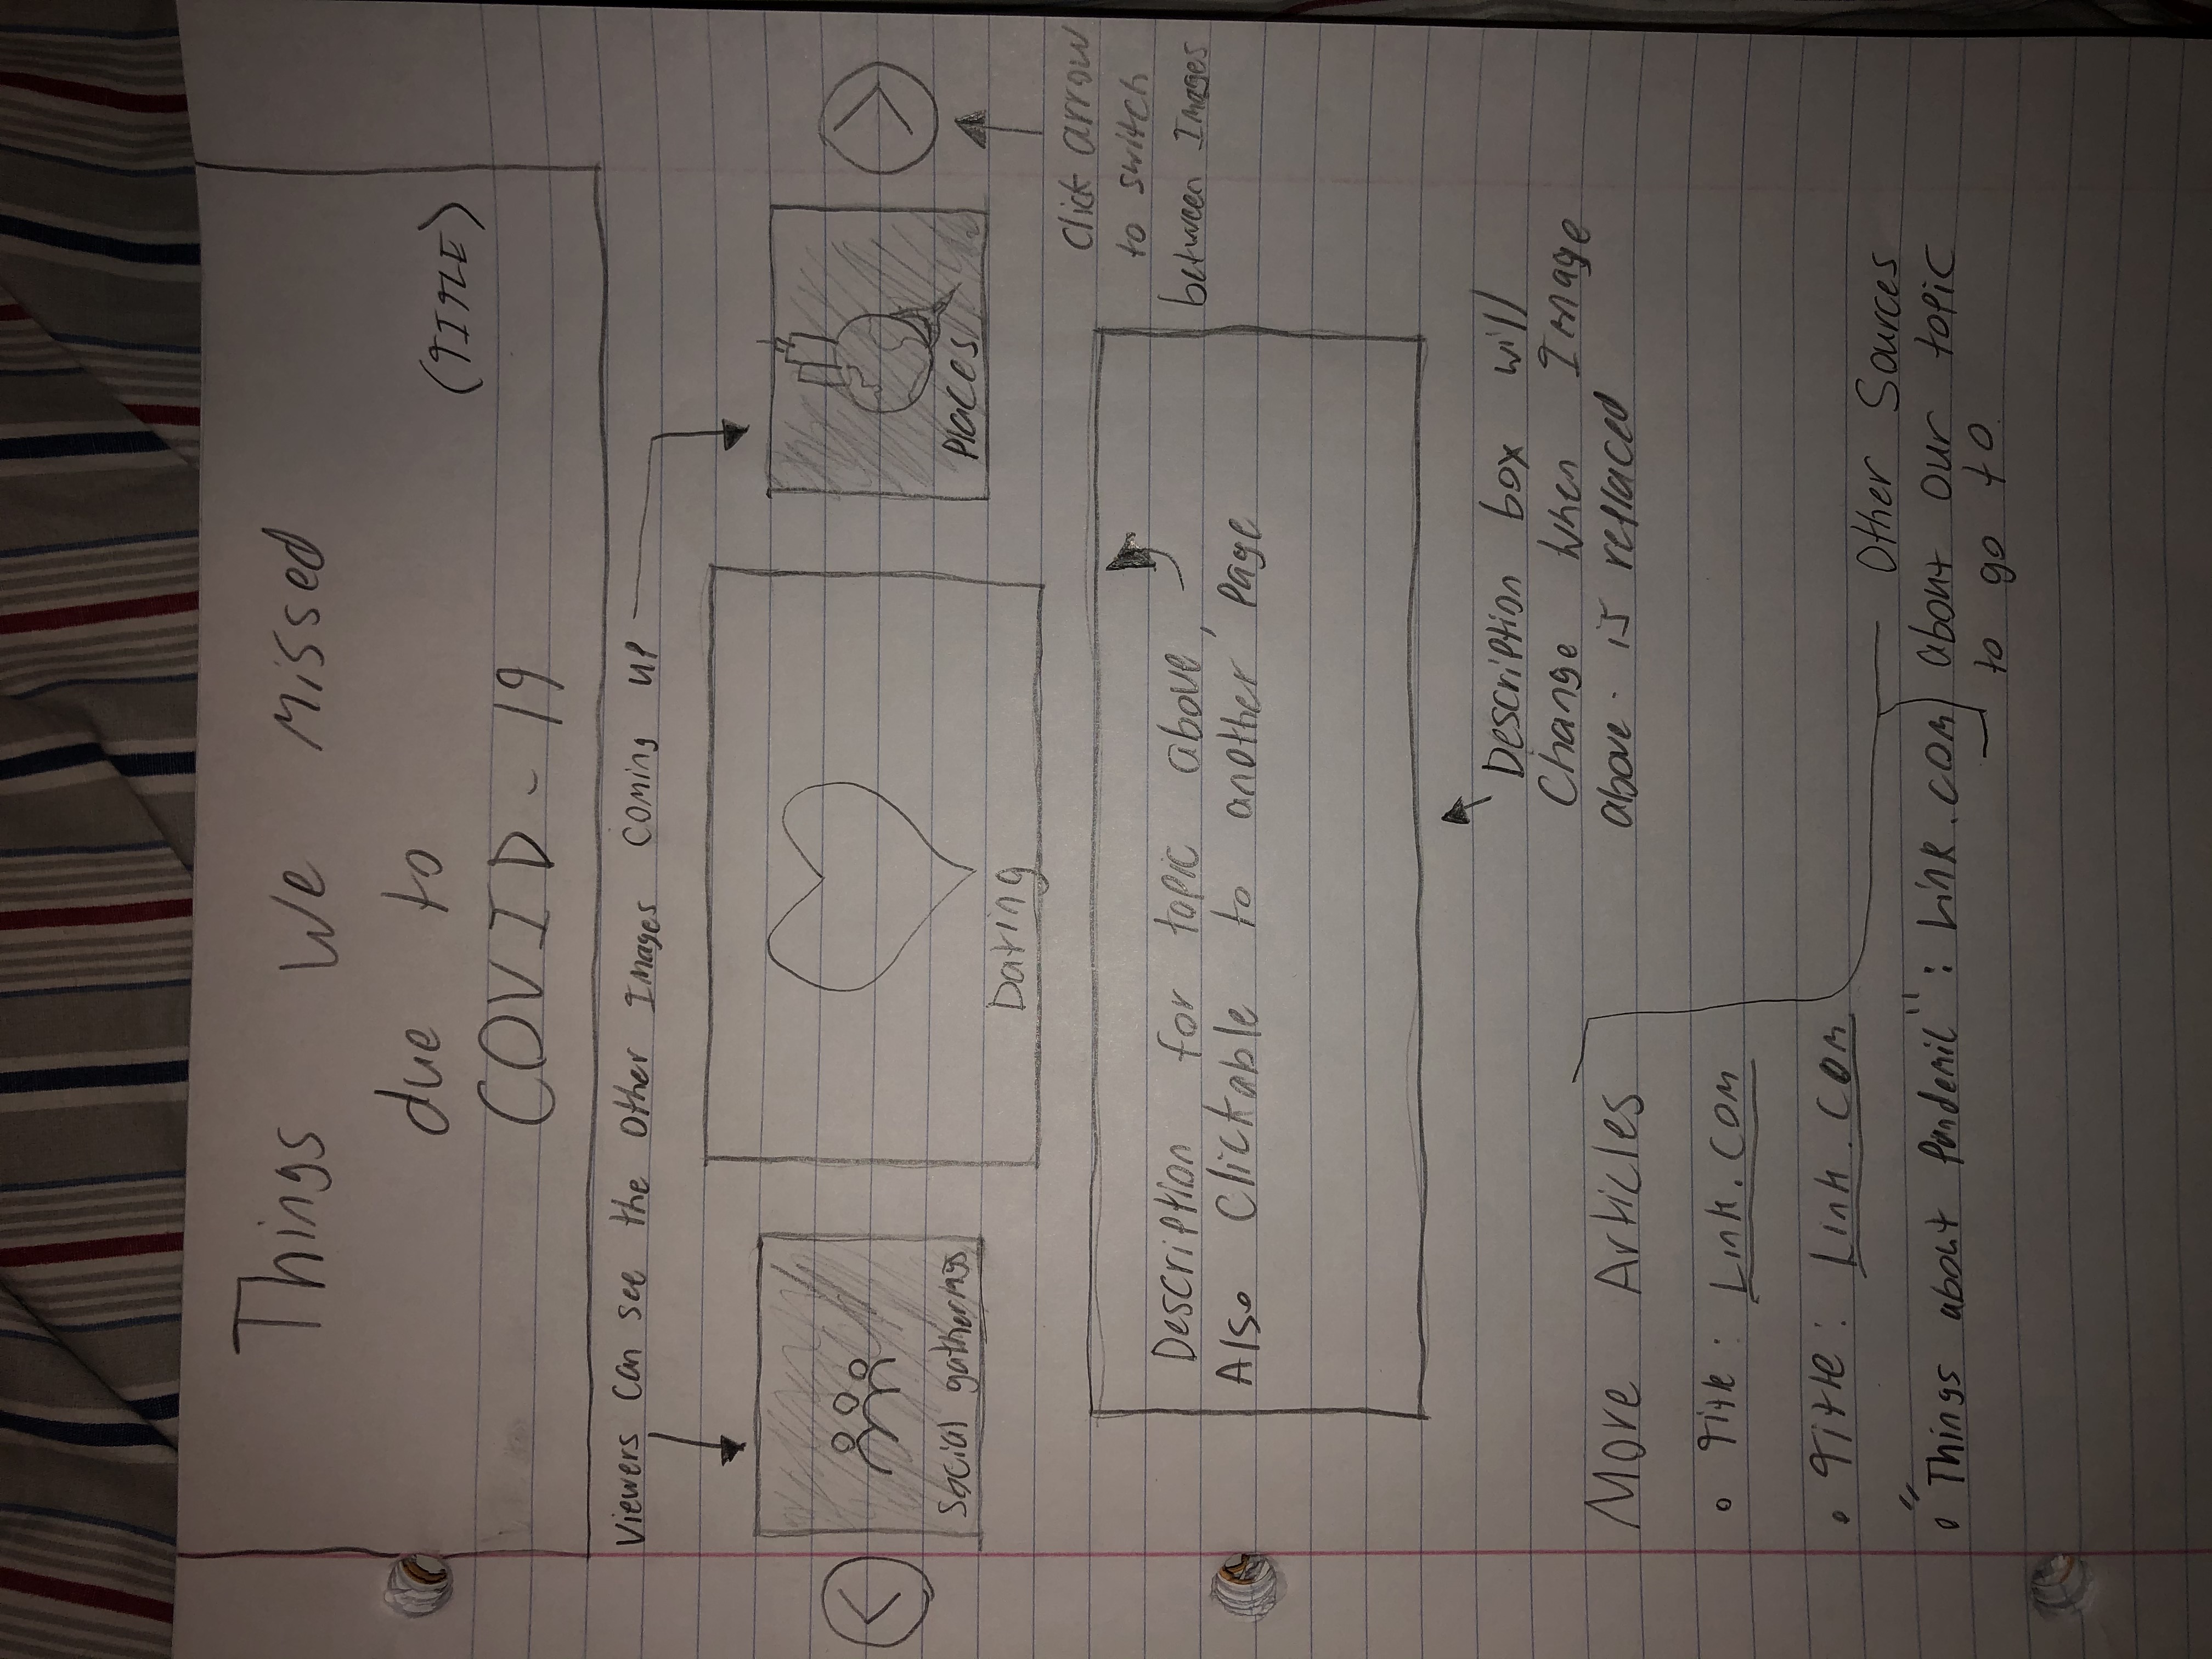 Things We Missed
due to
COVID-19
(TITLE)
Viewers can see the other Images coming up
<
Social gatherings
Dating
Places
>
Click arrow
to switch
between Images
Description for topic above,
Also Clickable to another page
Description box will
Change when Image
above is replaced
More Articles
• Title: Link.com
• Title: Link.com
• "Things about Pandemic": Link.com
Other Sources
about our topic
to go to.